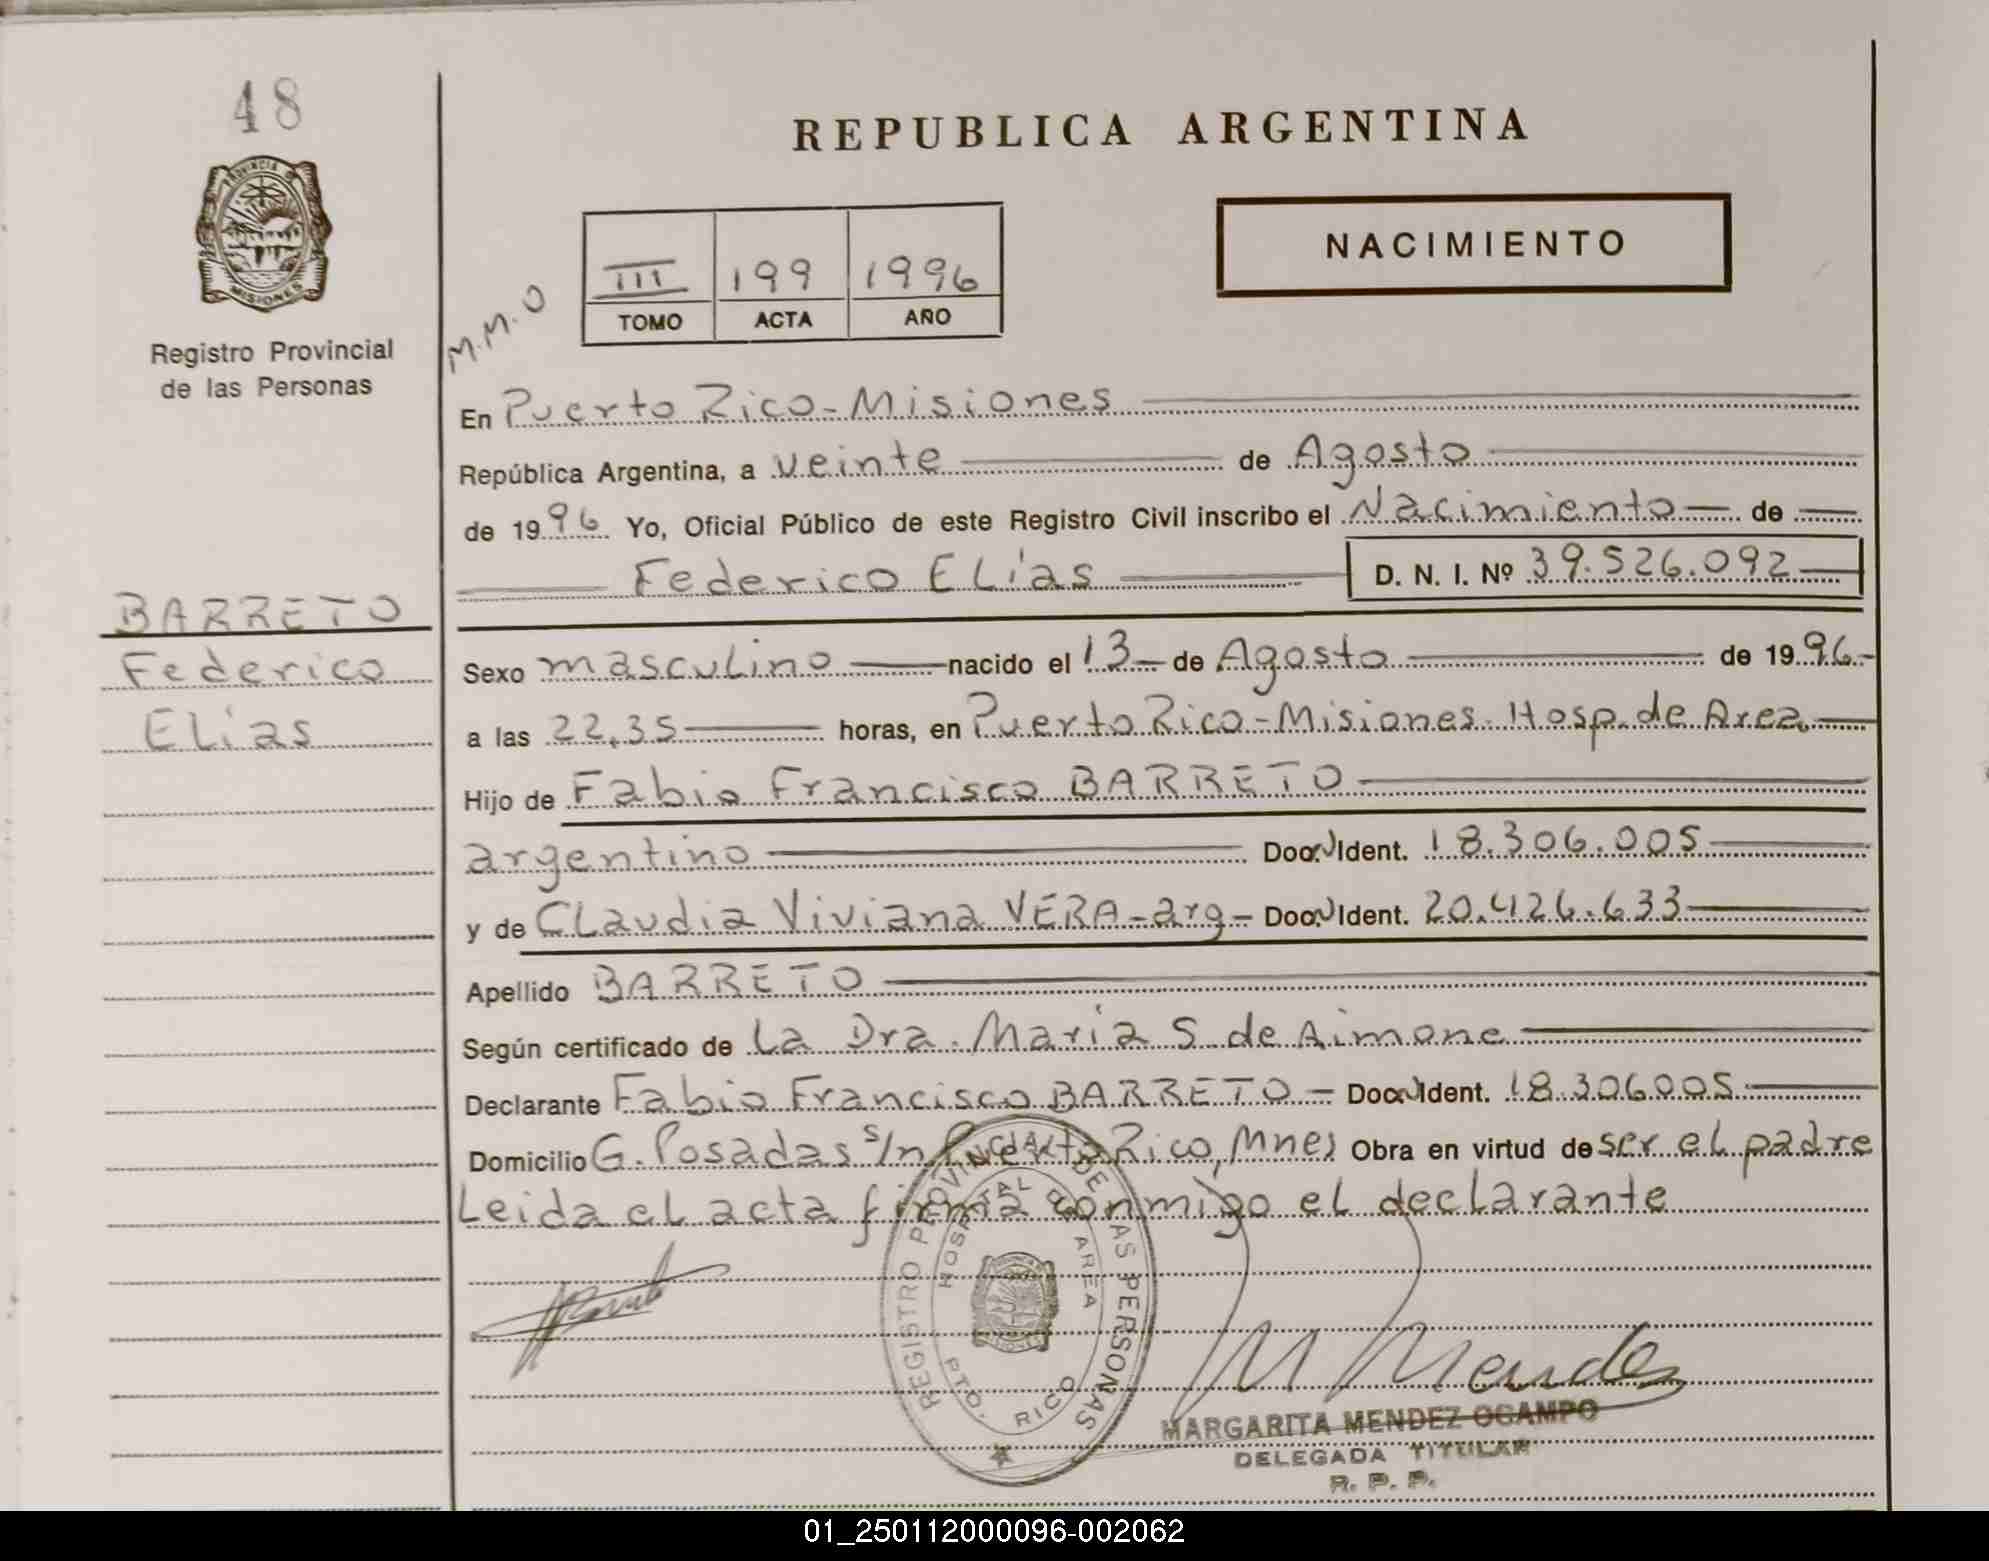 48
PROVINCIA DE
MISIONES
Registro Provincial
de las Personas
BARRETO
Federico
Elias
REPUBLICA ARGENTINA
III 199 1996
TOMO ACTA AÑO
NACIMIENTO
M.M.O
En Puerto Rico-Misiones
República Argentina, a veinte de Agosto
de 1996 Yo, Oficial Público de este Registro Civil inscribo el Nacimiento de
Federico Elías D. N. I. Nº 39.526.092
Sexo masculino nacido el 13 de Agosto de 1996
a las 22,35 horas, en Puerto Rico-Misiones. Hosp. de Area
Hijo de Fabio Francisco BARRETO
argentino Doc. Ident. 18.306.005
y de Claudia Viviana VERA-arg- Doc. Ident. 20.426.633
Apellido BARRETO
Según certificado de La Dra. María S. de Aimone
Declarante Fabio Francisco BARRETO - Doc. Ident. 18.306005
Domicilio G. Posadas s/n Puerto Rico, Mnes Obra en virtud de ser el padre
Leida el acta firma conmigo el declarante
REGISTRO PROVINCIAL DE LAS PERSONAS
HOSPITAL DE AREA
PTO. RICO
M Mendez
MARGARITA MENDEZ OCAMPO
DELEGADA TITULAR
R. P. P.
01_250112000096-002062